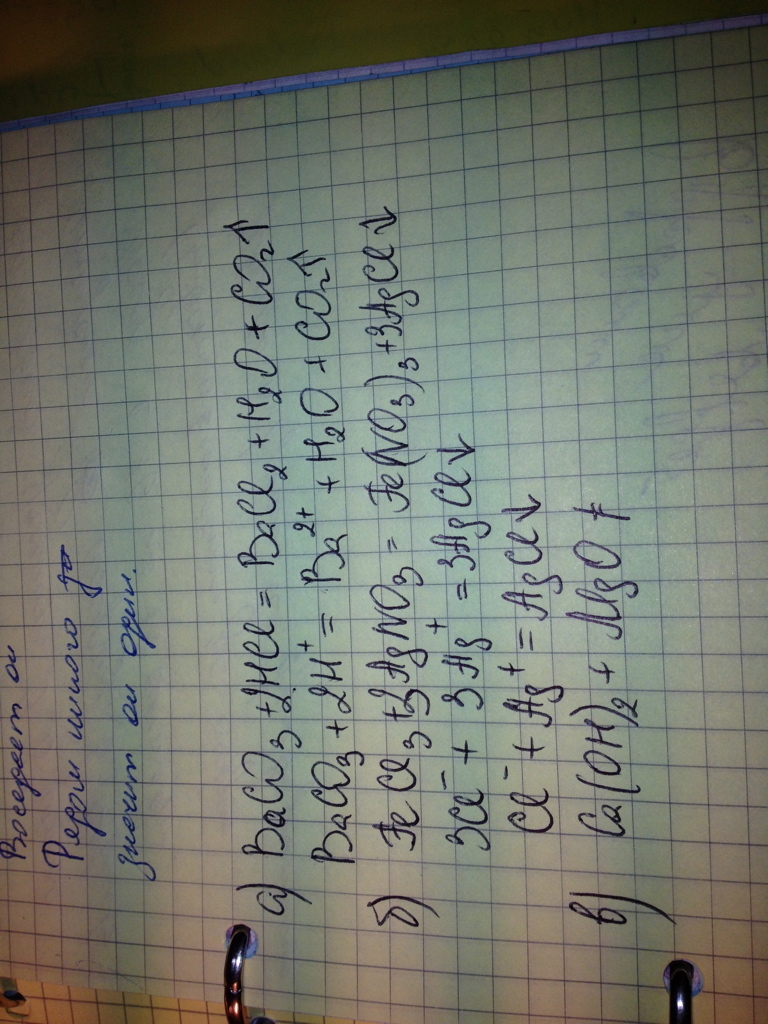 Рядом много
значит он один.
а) BaCO₃ + 2HCl = BaCl₂ + H₂O + CO₂↑
BaCO₃ + 2H⁺ = Ba²⁺ + H₂O + CO₂↑
б) FeCl₃ + 3AgNO₃ = Fe(NO₃)₃ + 3AgCl↓
3Cl⁻ + 3Ag⁺ = 3AgCl↓
Cl⁻ + Ag⁺ = AgCl↓
в) Ca(OH)₂ + MgO ≠